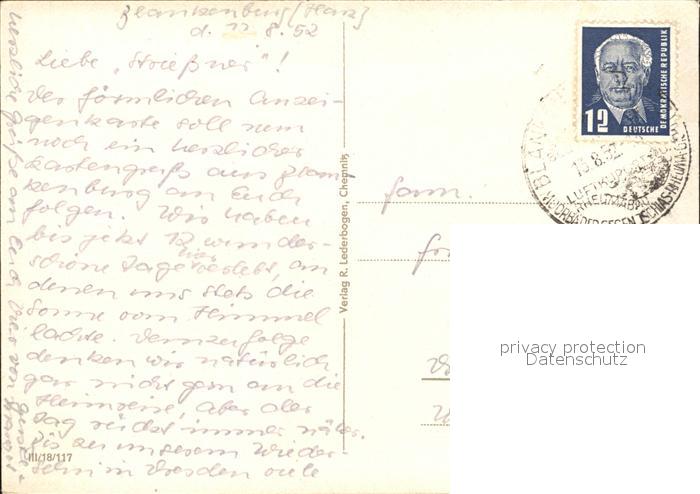 Blankenburg (Harz)
d. 12.8.52
Liebe „Strießner“!
Der förmlichen Anzei-
genkarte soll nun
noch ein herzlicher
Kartengruß aus Blan-
kenburg an Euch
folgen. Wir haben
bis jetzt 12 wunder-
schöne Tage hier verlebt, an
denen uns stets die
Sonne vom Himmel
lachte. Demzufolge
denken wir natürlich
gar nicht gern an die
Heimreise, aber der
Tag rückt immer näher.
Bis zu unserem Wieder-
sehn in Dresden viele
herzliche Grüße an Euch Vier von
Verlag R. Lederbogen, Chemnitz
III/18/117
Fam.
12
DEUTSCHE
DEMOKRATISCHE REPUBLIK
BLAN
13.8.52
LUFTKURORT
privacy protection
Datenschutz